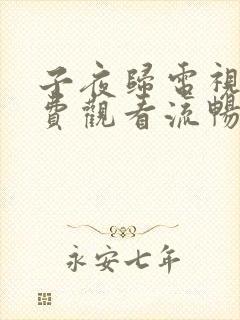 子夜歸電視
費觀看流暢
永安七年